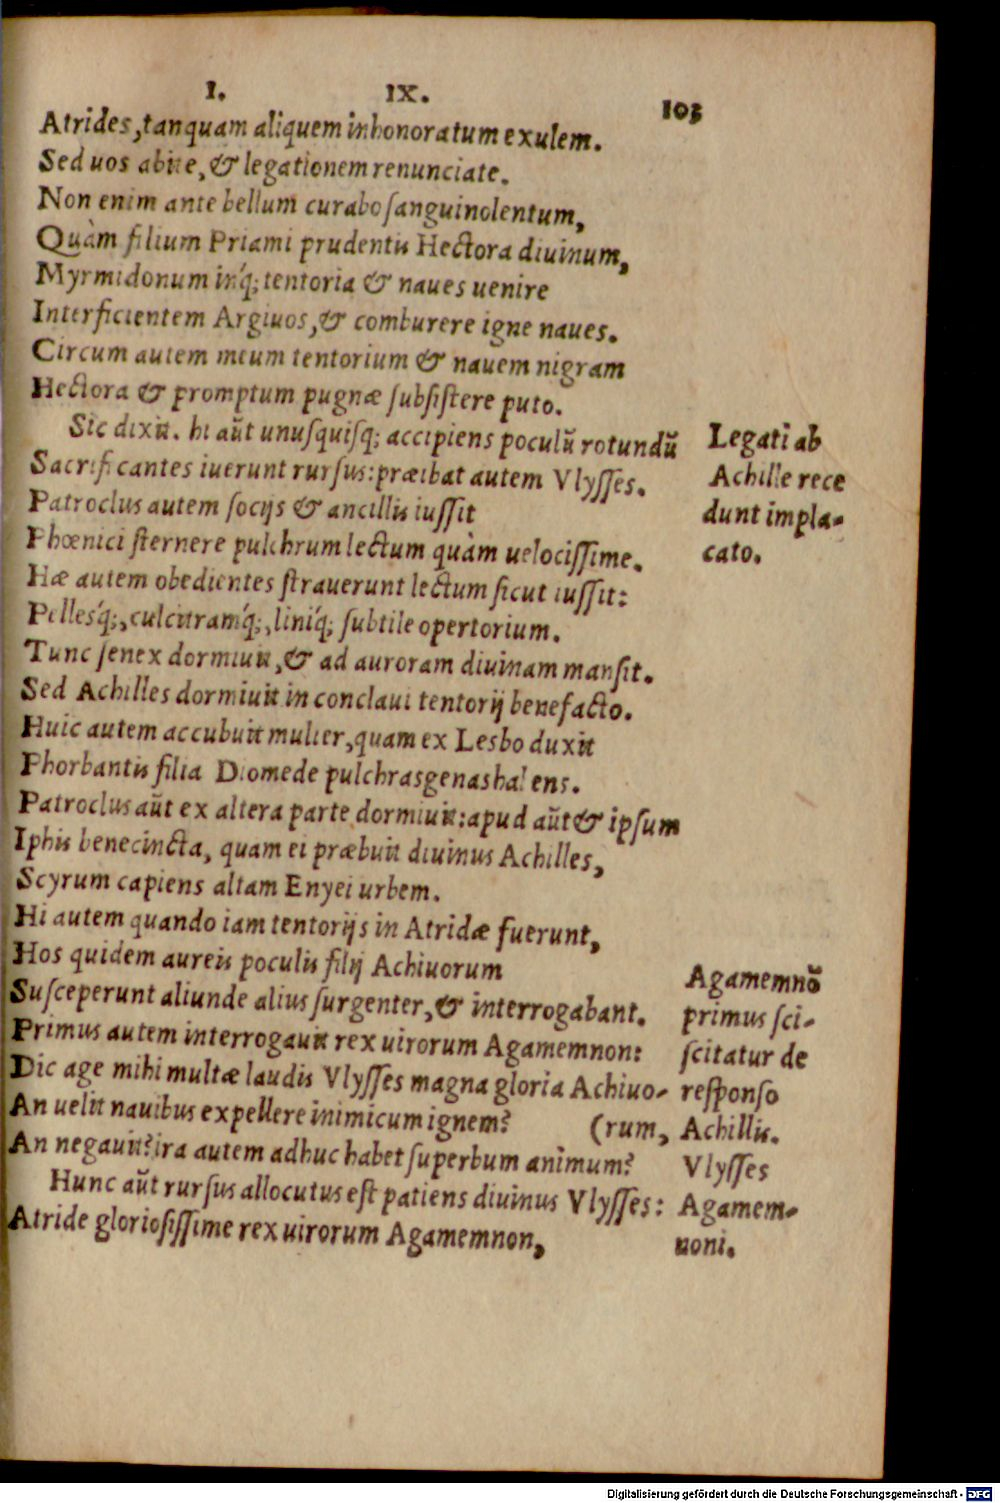 I. IX. 103
Atrides, tanquam aliquem inhonoratum exulem.
Sed uos abite, & legationem renunciate.
Non enim ante bellum curabo sanguinolentum,
Quàm filium Priami prudentis Hectora diuinum,
Myrmidonum inq́; tentoria & naues uenire
Interficientem Argiuos, & comburere igne naues.
Circum autem meum tentorium & nauem nigram
Hectora & promptum pugnæ subsistere puto.
Sic dixit. hi aūt unusquisq; accipiens poculū rotundū
Sacrificantes iuerunt rursus: præibat autem Vlysses.
Patroclus autem socijs & ancillis iussit
Phœnici sternere pulchrum lectum quàm uelocissime.
Hæ autem obedientes strauerunt lectum sicut iussit:
Pellesq́;, culcitramq́;, liniq́; subtile opertorium.
Tunc senex dormiuit, & ad auroram diuinam mansit.
Sed Achilles dormiuit in conclaui tentorij benefacto.
Huic autem accubuit mulier, quam ex Lesbo duxit
Phorbantis filia Diomede pulchras genas habens.
Patroclus aūt ex altera parte dormiuit: apud aūt & ipsum
Iphis benecincta, quam ei præbuit diuinus Achilles,
Scyrum capiens altam Enyei urbem.
Hi autem quando iam tentorijs in Atridæ fuerunt,
Hos quidem aureis poculis filij Achiuorum
Susceperunt aliunde alius surgenter, & interrogabant.
Primus autem interrogauit rex uirorum Agamemnon:
Dic age mihi multæ laudis Vlysses magna gloria Achiuo-
An uelit nauibus expellere inimicum ignem? (rum,
An negauit? ira autem adhuc habet superbum animum?
Hunc aūt rursus allocutus est patiens diuinus Vlysses:
Atride gloriosissime rex uirorum Agamemnon,
Legati ab
Achille rece
dunt impla-
cato.
Agamemnō
primus sci-
scitatur de
responso
Achillis.
Vlysses
Agamem-
noni.
Digitalisierung gefördert durch die Deutsche Forschungsgemeinschaft - DFG